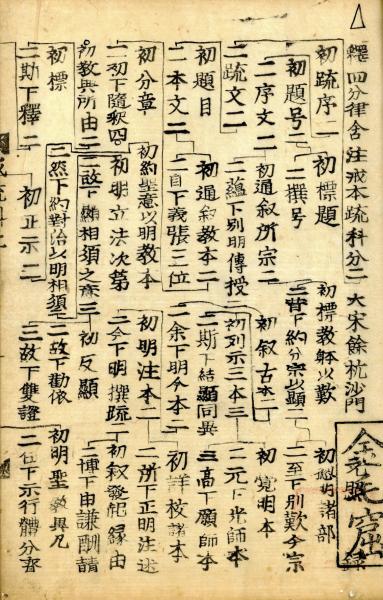 釋四分律含注戒本疏科分二 大宋餘杭沙門
初疏序二 初標題 初標教 以歎 初 明諸部
初題号二 二撰号 二背下約分宗以顯二 二至下別歎今宗
二序文二 初通叙所宗二 初叙古本二 初 明本
二疏文二 二蘊下別明傳授 初列示三本三 二元下光師本
初題目 初通叙教本二 二斯下結顯同異 三高下願師本
二本文二 二自下義張三位 二余下明今本二 初詳校諸本
初分章二 初約聖意以明教本 初明注本二 二所下正明注述
二初下隨釈四 初明立法次第 二今下明撰疏二 初叙發起緣由
初教興所由二 二故下顯相須之意三 初反顯 二博下申謙酬請
初標 二然下約對治以明相須三 二故下勸依 初明聖教異凡
二斯下釋二 初正示二 三故下雙證 二 下示行體分齊